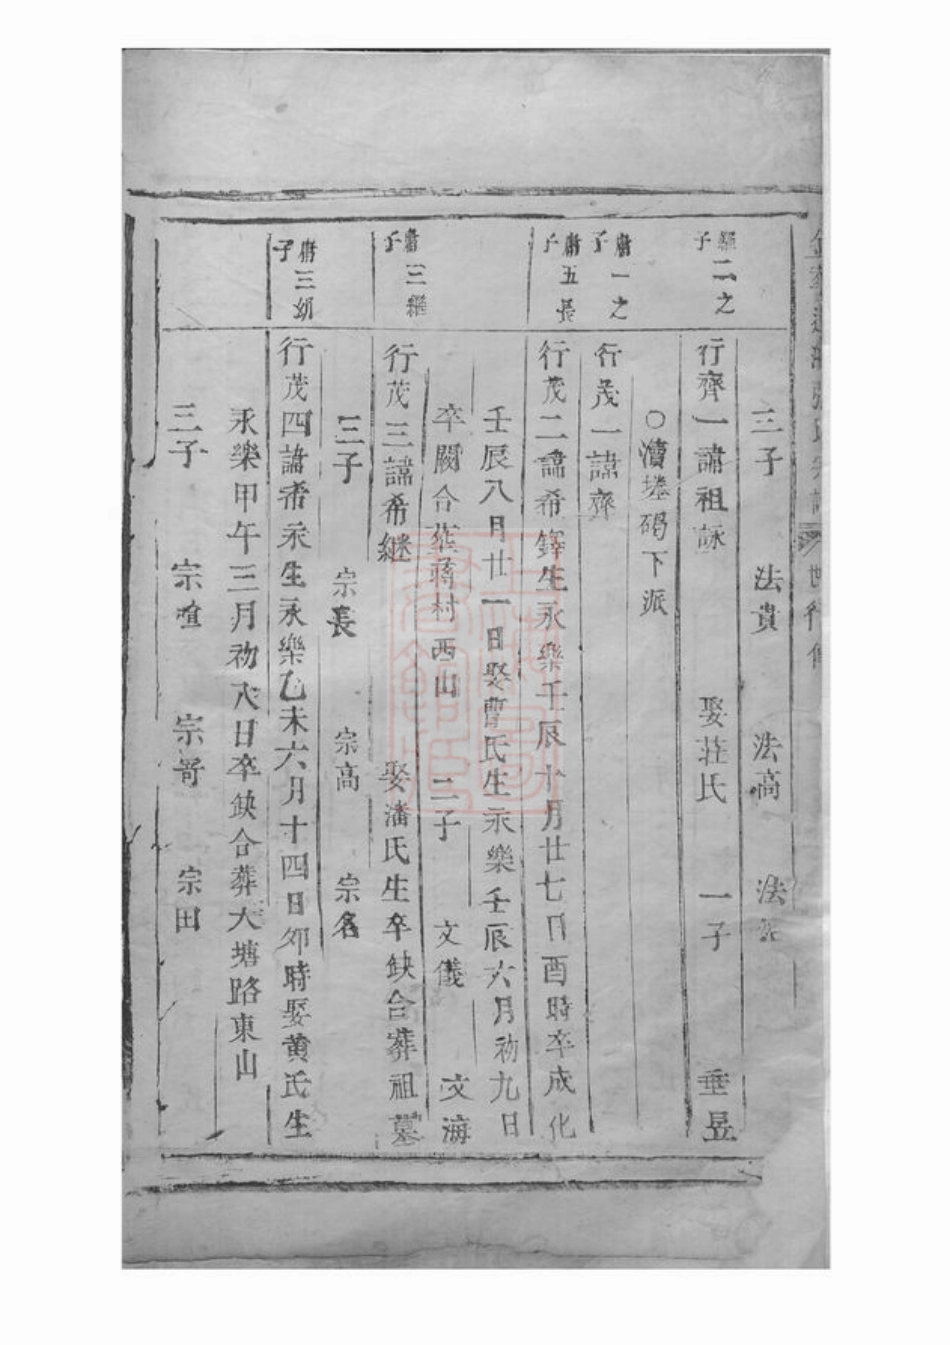 三子 法貴 法高 法
二之
子
行齊一諱祖詠 娶莊氏 一子 垂昱
○瀆墐碣下派
庸一之
子
行茂一諱齊
庸五長
子
行茂二諱希鐸生永樂壬辰十月廿七日酉時卒成化
壬辰八月廿一日娶曹氏生永樂壬辰六月初九日
卒闕合葬蔣村西山 二子 文儀 文海
庸三繼
子
行茂三諱希継 娶潘氏生卒缺合葬祖墓
三子 宗長 宗高 宗名
庸三幼
子
行茂四諱希永生永樂乙未六月十四日卯時娶黄氏生
永樂甲午三月初六日卒缺合葬大塘路東山
三子 宗喧 宗哥 宗田